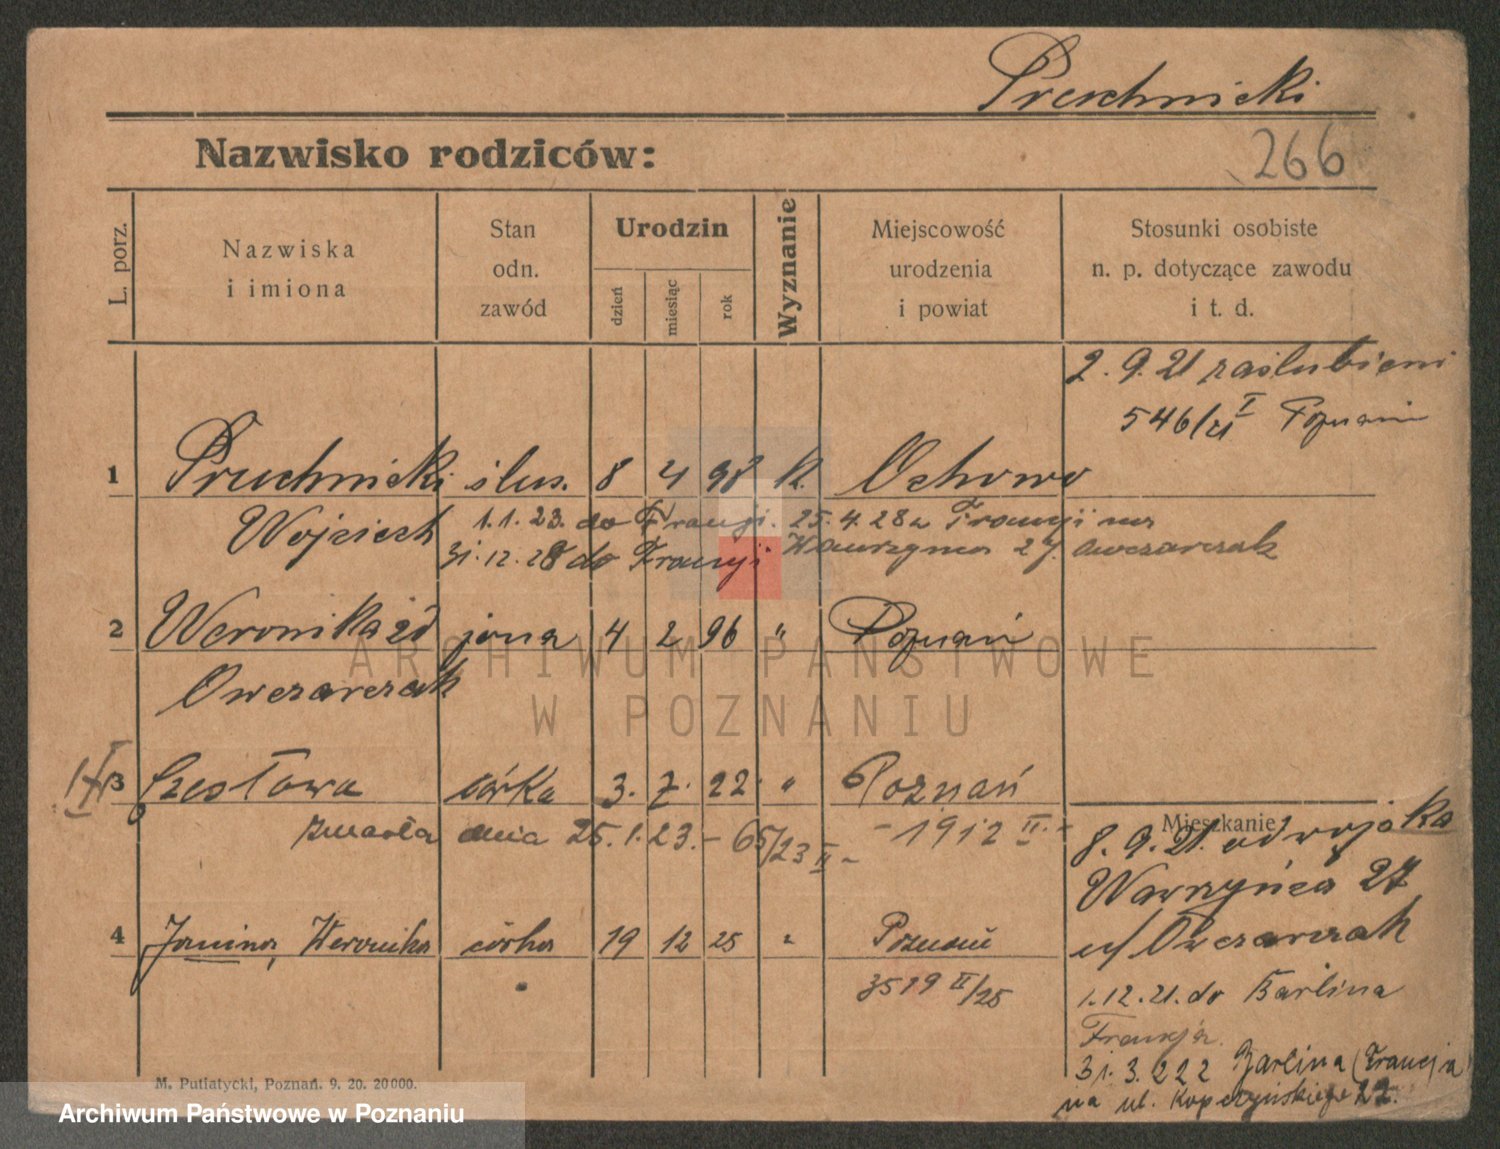 Pruchnicki
Nazwisko rodziców:
266
L. porz.
Nazwiska
i imiona
Stan
odn.
zawód
Urodzin
dzień
miesiąc
rok
Wyznanie
Miejscowość
urodzenia
i powiat
Stosunki osobiste
n. p. dotyczące zawodu
i t. d.
2.9.21 zaślubieni
546/21 I Poznań
1 Pruchnicki ślus. 8 4 98 k. Ochowo
Wojciech
1.1.23. do Francji. 25.4.28 z Francji na
31.12.28 do Francji Wawrzyńca 27. Owczarczak
2 Weronika zd żona 4 2 96 " Poznań
Owczarczak
3 Czesława córka 3. 7. 22 " Poznań
zmarła dnia 25.1.23. - 65/23 II -
- 1912 II. -
Mieszkanie
8.9.21. od wojska
Wawrzyńca 27
u/ Owczarczak
4 Janina, Weronika córka 19 12 25 " Poznań
3519 II/25
1.12.21. do Barlina
Francja.
31.3.222 Barlina (Francja
na ul. Kopczyńskiego 22.
M. Putiatycki, Poznań. 9. 20. 20000.
ARCHIWUM PAŃSTWOWE
W POZNANIU
Archiwum Państwowe w Poznaniu